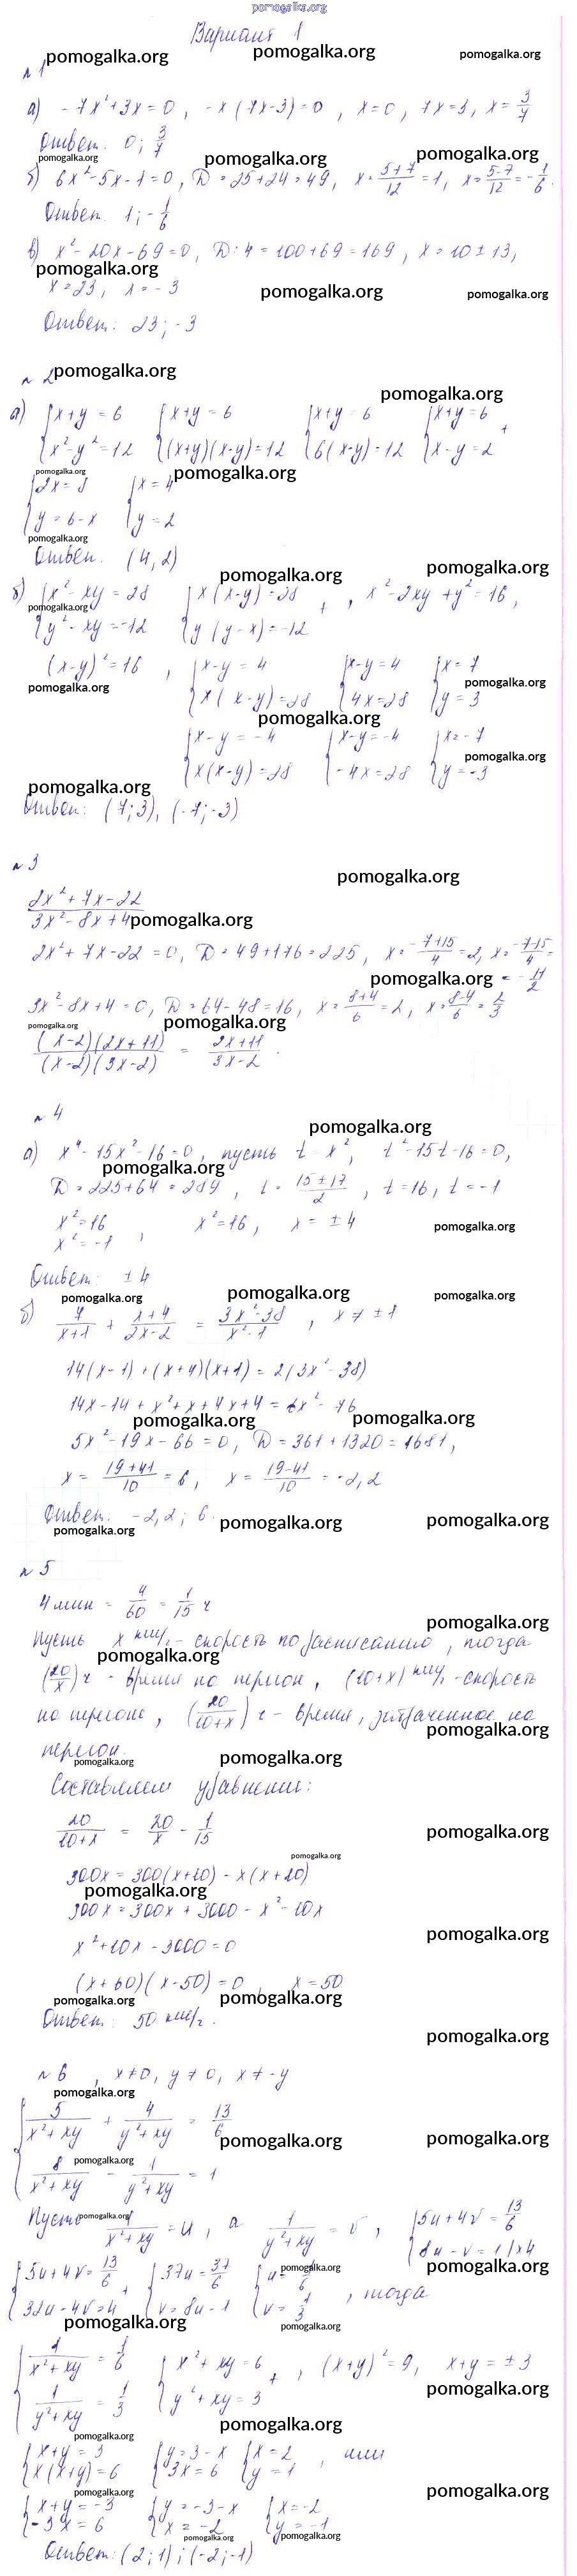 pomogalka.org
Вариант 1
№1 pomogalka.org pomogalka.org pomogalka.org
а) -7x²+3x=0, -x(7x-3)=0, x=0, 7x=3, x=3/7
Ответ: 0; 3/7
pomogalka.org pomogalka.org pomogalka.org
б) 6x²-5x-1=0, D=25+24=49, x=(5+7)/12=1, x=(5-7)/12=-1/6.
Ответ. 1; -1/6
в) x²-20x-69=0, D:4=100+69=169, x=10±13,
pomogalka.org
x=23, x=-3 pomogalka.org pomogalka.org
Ответ: 23; -3
№2 pomogalka.org
pomogalka.org
а) {x+y=6 {x+y=6 {x+y=6 {x+y=6 +
{x²-y²=12 {(x+y)(x-y)=12 {6(x-y)=12 {x-y=2
pomogalka.org pomogalka.org
{2x=8 {x=4
{y=6-x {y=2
pomogalka.org
Ответ. (4,2)
pomogalka.org pomogalka.org
б) {x²-xy=28 {x(x-y)=28 + , x²-2xy+y²=16,
pomogalka.org
{y²-xy=-12 {y(y-x)=-12
(x-y)²=16, {x-y=4 {x-y=4 {x=7
pomogalka.org pomogalka.org
{x(x-y)=28 {4x=28 {y=3
pomogalka.org
{x-y=-4 {x-y=-4 {x=-7
pomogalka.org
{x(x-y)=28 {-4x=28 {y=-3
pomogalka.org
Ответ: (7;3), (-7;-3)
№3
pomogalka.org
(2x²+7x-22)/(3x²-8x+4) pomogalka.org
2x²+7x-22=0, D=49+176=225, x=(-7+15)/4=2, x=(-7-15)/4=
pomogalka.org =-11/2
3x²-8x+4=0, D=64-48=16, x=(8+4)/6=2, x=(8-4)/6=2/3
pomogalka.org pomogalka.org
((x-2)(2x+11))/((x-2)(3x-2)) = (2x+11)/(3x-2).
№4
pomogalka.org
а) x⁴-15x²-16=0, пусть t=x², t²-15t-16=0,
pomogalka.org
D=225+64=289, t=(15±17)/2, t=16, t=-1
x²=16 , x²=16, x=±4 pomogalka.org
x²=-1
Ответ: ±4
pomogalka.org pomogalka.org pomogalka.org
б) 7/(x+1) + (x+4)/(2x-2) = (3x²-38)/(x²-1), x≠±1
14(x-1)+(x+4)(x+1)=2(3x²-38)
14x-14+x²+x+4x+4=6x²-76
pomogalka.org pomogalka.org
5x²-19x-66=0, D=361+1320=1681,
x=(19+41)/10=6, x=(19-41)/10=-2,2
Ответ. -2,2; 6.
pomogalka.org pomogalka.org pomogalka.org
№5
4 мин = 4/60 = 1/15 ч
pomogalka.org
Пусть x км/ч - скорость по расписанию, тогда
pomogalka.org
(20/x) ч - время на перегон, (10+x) км/ч - скорость
на перегоне, (20/(10+x)) ч - время, затраченное на
pomogalka.org
перегон.
pomogalka.org pomogalka.org
Составляем уравнение:
20/(10+x) = 20/x - 1/15
pomogalka.org
pomogalka.org
300x=300(x+10)-x(x+10)
pomogalka.org
300x=300x+3000-x²-10x
pomogalka.org
x²+10x-3000=0
(x+60)(x-50)=0, x=50
pomogalka.org pomogalka.org
Ответ: 50 км/ч.
pomogalka.org
№6, x≠0, y≠0, x≠-y
pomogalka.org
{5/(x²+xy) + 4/(y²+xy) = 13/6
pomogalka.org pomogalka.org
pomogalka.org
{8/(x²+xy) - 1/(y²+xy) = 1
Пусть 1/(x²+xy)=u, а 1/(y²+xy)=v, {5u+4v=13/6
pomogalka.org
{8u-v=1 |×4
{5u+4v=13/6 + {37u=37/6 {u=1/6 , тогда
pomogalka.org pomogalka.org
{32u-4v=4 {v=8u-1 {v=1/3
pomogalka.org pomogalka.org
{1/(x²+xy)=1/6 {x²+xy=6 + , (x+y)²=9, x+y=±3
{1/(y²+xy)=1/3 {y²+xy=3
pomogalka.org
pomogalka.org
pomogalka.org
{x+y=3 {y=3-x {x=2 , или
{x(x+y)=6 {3x=6 {y=1
pomogalka.org pomogalka.org pomogalka.org
{x+y=-3 {y=-3-x {x=-2
{-3x=6 {x=-2 {y=-1
pomogalka.org pomogalka.org
Ответ: (2;1); (-2;-1)